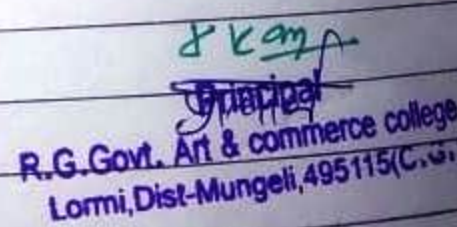 Principal
R.G.Govt. Art & commerce college
Lormi,Dist-Mungeli,495115(C.G.